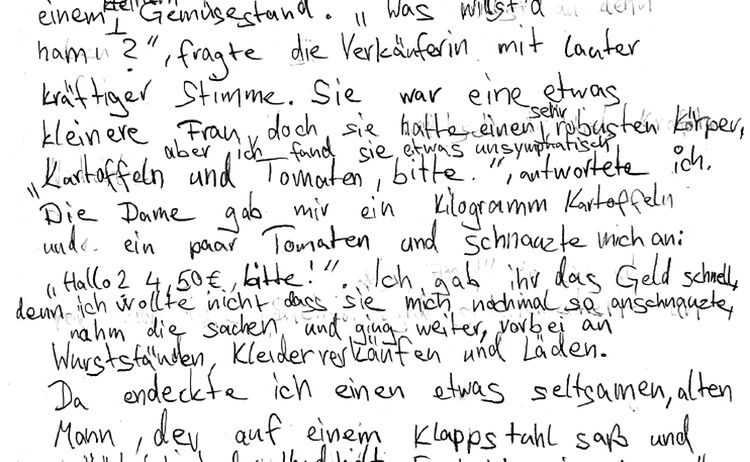 einem Gemüsestand. „Was willst d denn
hamn?", fragte die Verkäuferin mit lauter
kräftiger Stimme. Sie war eine etwas
sehr
kleinere Frau, doch sie hatte einen robusten Körper,
aber ich fand sie etwas unsymphatisch
„Kartoffeln und Tomaten, bitte.", antwortete ich.
Die Dame gab mir ein Kilogramm Kartoffeln
und ein paar Tomaten und schnauzte mich an:
„Hallo 4,50€, bitte!". Ich gab ihr das Geld schnell,
denn ich wollte nicht dass sie mich nochmal so anschnauzte,
nahm die sachen und ging weiter, vorbei an
Wurstständen, Kleiderverkäufen und Läden.
Da endeckte ich einen etwas seltsamen, alten
Mann, der auf einem Klappstuhl saß und